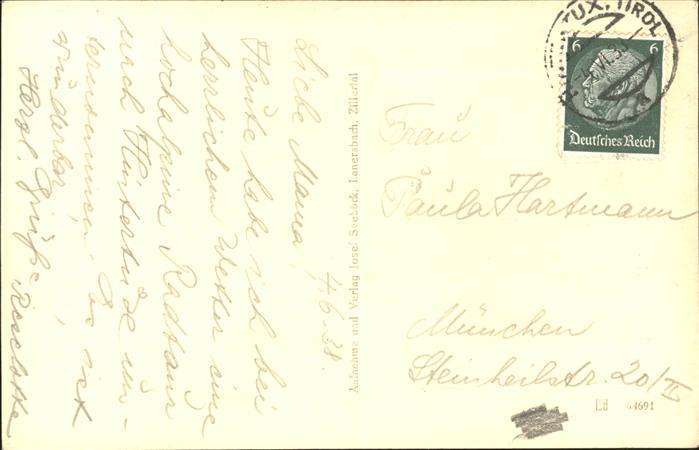 4.6.38.
Liebe Mama!
Heute habe ich bei
herrlichem Wetter eine
hochalpine Radtour
nach Hintertux un-
ternommen. Es ist
wunderbar.
Herzl. Grüße
Aufnahme und Verlag Josef Seeböck, Lanersbach, Zillertal
TUX, TIROL
6 6
Deutsches Reich
Frau
Paula Hartmann
München
Steinheilstr. 20/II
Ld 64691